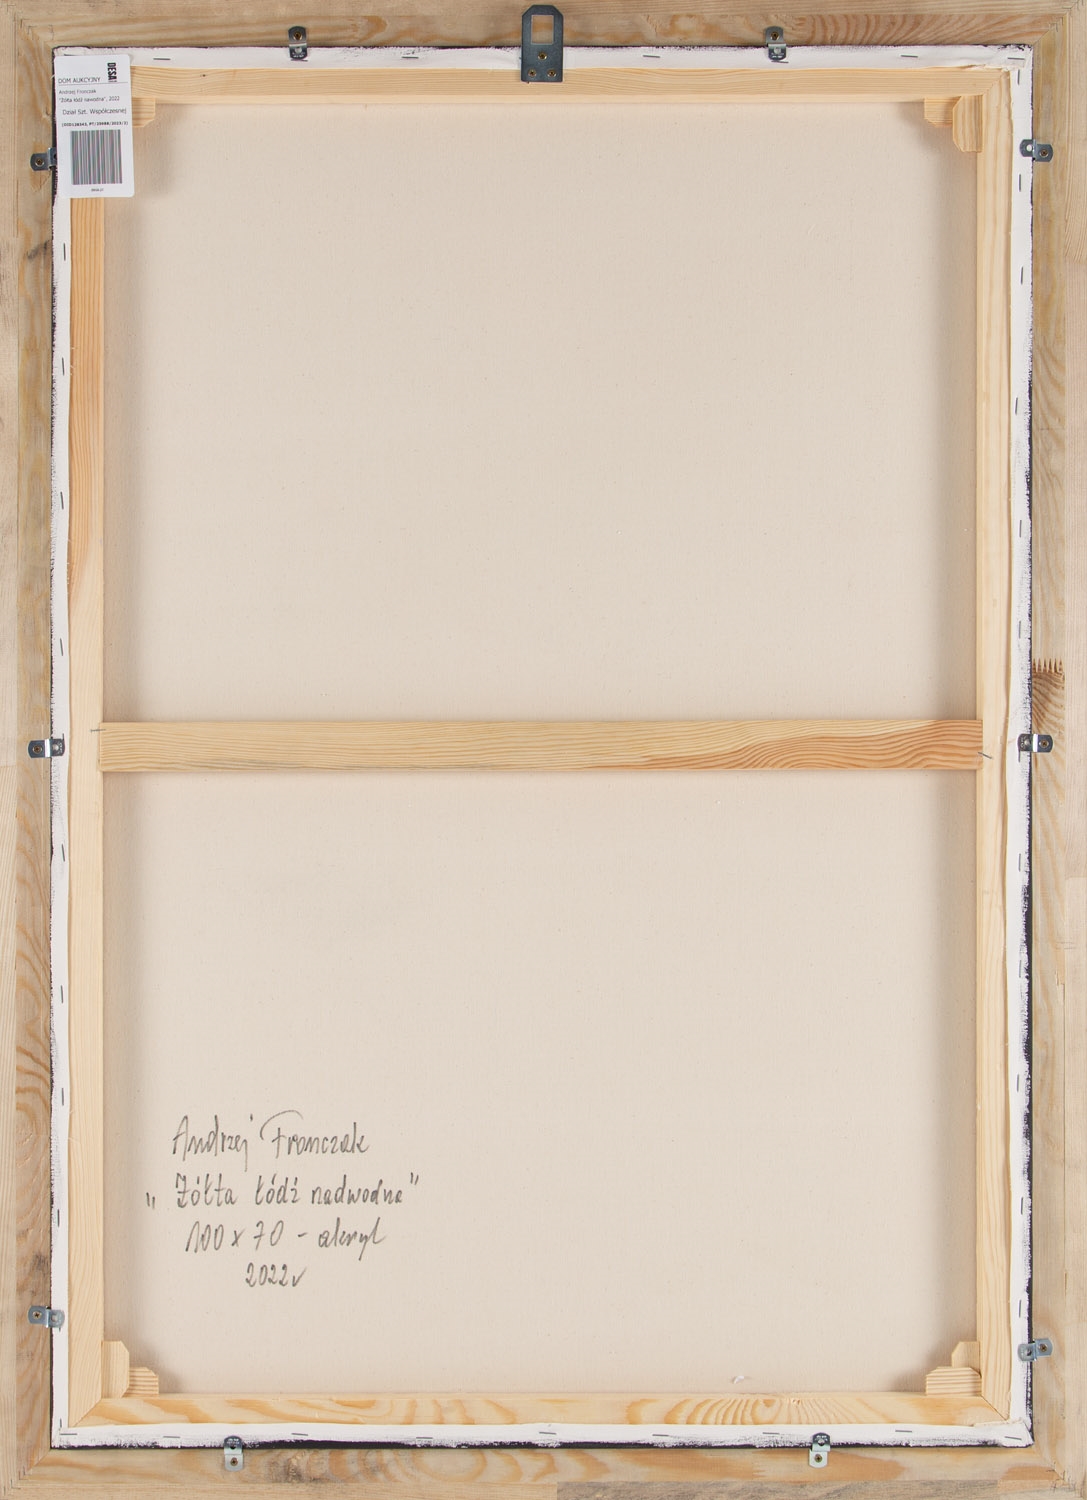 DESA
DOM AUKCYJNY
Andrzej Fronczak
"Żółta łódź nawodna", 2022
Dział Szt. Współczesnej
Andrzej Fronczak
„Żółta łódź nadwodna"
100 x 70 - akryl
2022r